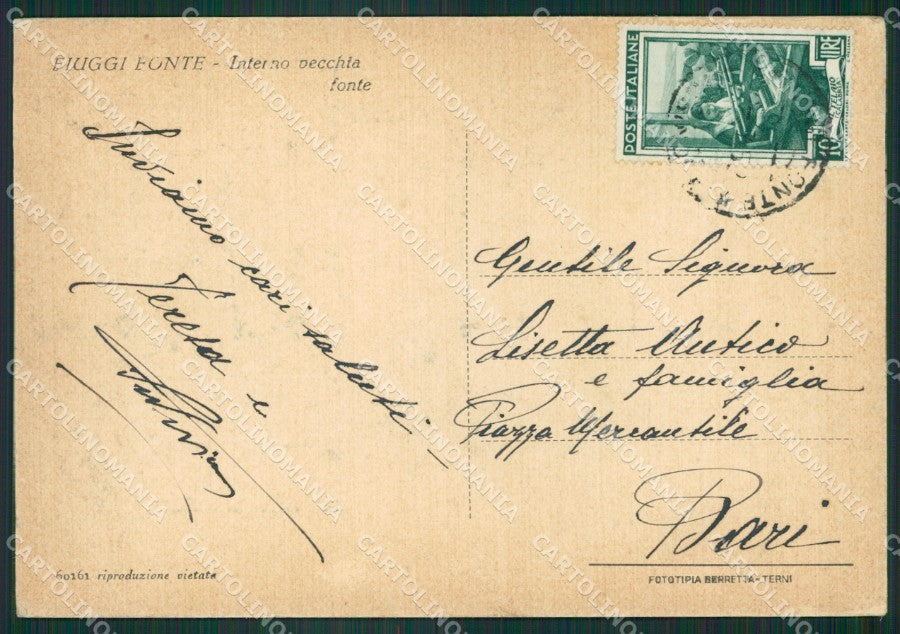 FIUGGI FONTE - Interno vecchia
fonte
Inviamo cari saluti
Teresa e
POSTE ITALIANE
LIRE
10
Gentile Signora
Lisetta Antico
e famiglia
Piazza Mercantile
Bari
60161 riproduzione vietata
FOTOTIPIA BERRETTA - TERNI
CARTOLINOMANIA